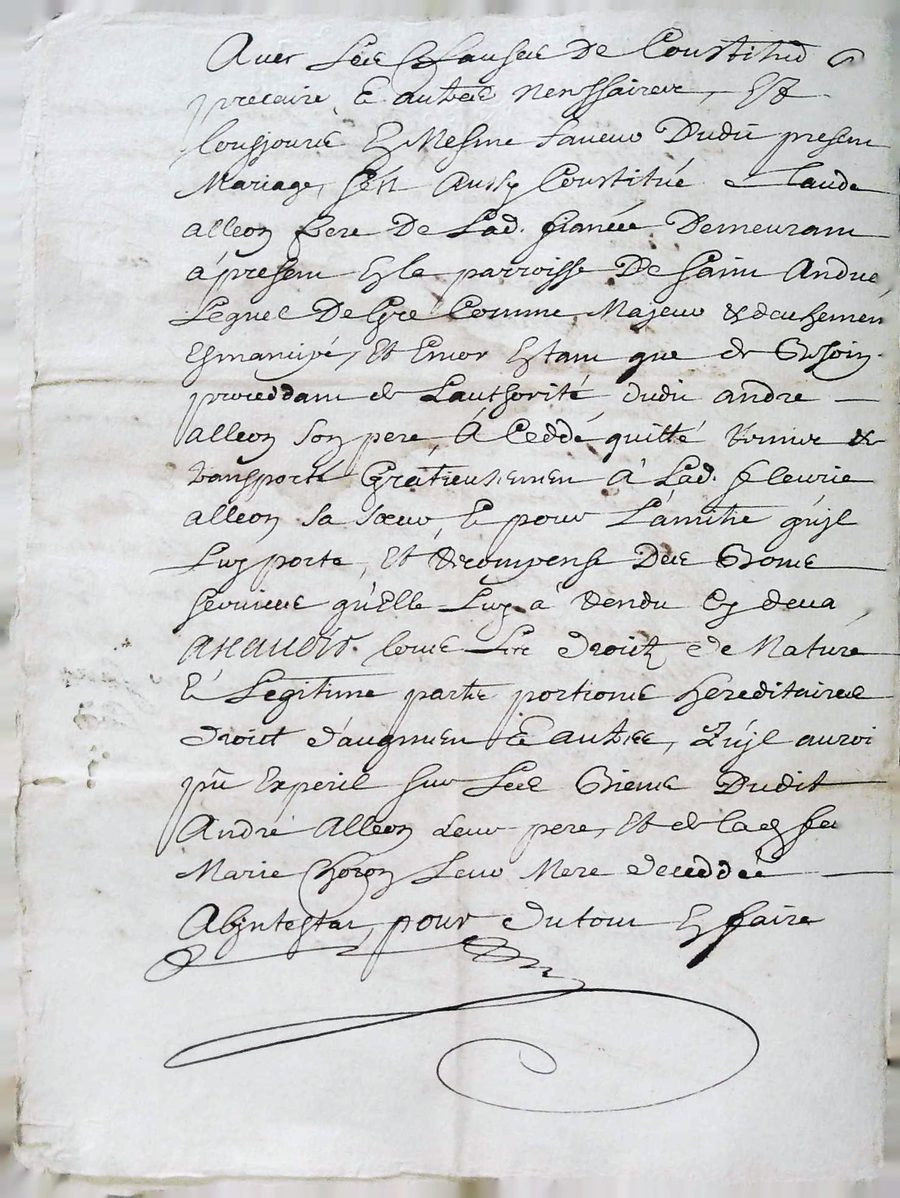 Avec Les Clauses De Constitud &
precaire & autres nenssaires, Et
tousjours En Mesme faveur Dudit presem
Mariage, s'est Aussy Constitué Claude
alleon frere De Lad. fiancée Demeuram
á presem En la parroisse De Sainct André
Lequel De Gré Comme Majeur & deuhemen
Esmancipé, Et Encor Estam que de Besoin
proceddam de Lauthorité dudit andré
alleon son pere, Á Ceddé quitté Remis &
transporté Gratieusemen À Lad. fleurie
alleon sa soeur, & pour L'amitié qu'jl
Luy porte, Et Recompense Des Bons
services qu'Elle Luy à Rendu Cy deva
tous Les droictz de Nature
& Legitime partie portions hereditaires
Droict d'augmen & autres, qu'jl auroi
pû Experil sur Les Biens Dudit
André Alleon Leur pere, Et de lad feu
Marie Leur Mere deceddée
Abjntestat, pour du tout En faire